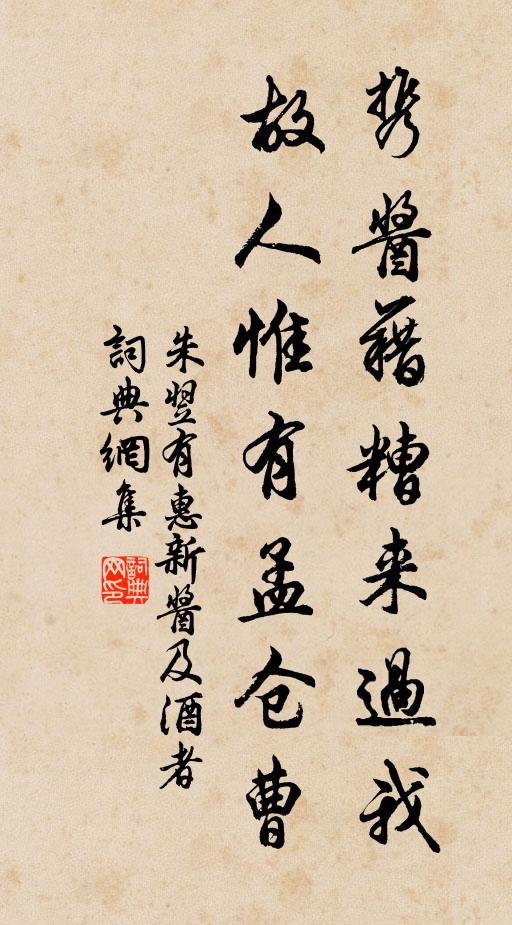 携醬藉糟来過我
故人惟有孟仓曹
朱翌有惠新醬及酒者
詞典網集
詞典网印